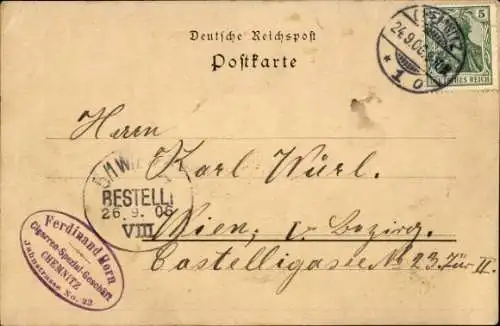 Deutsche Reichspost
Postkarte
CHEMNITZ
24.9.06
* 1 o
5
DEUTSCHES REICH
Herrn
Karl Würl.
WIEN
BESTELLT
26.9.06
VIII
Wien, V. Bezirg.
Castelligasse No 23. Tür II.
Ferdinand Horn
Cigarren-Spezial-Geschäft
CHEMNITZ
Jahnstrasse No. 22